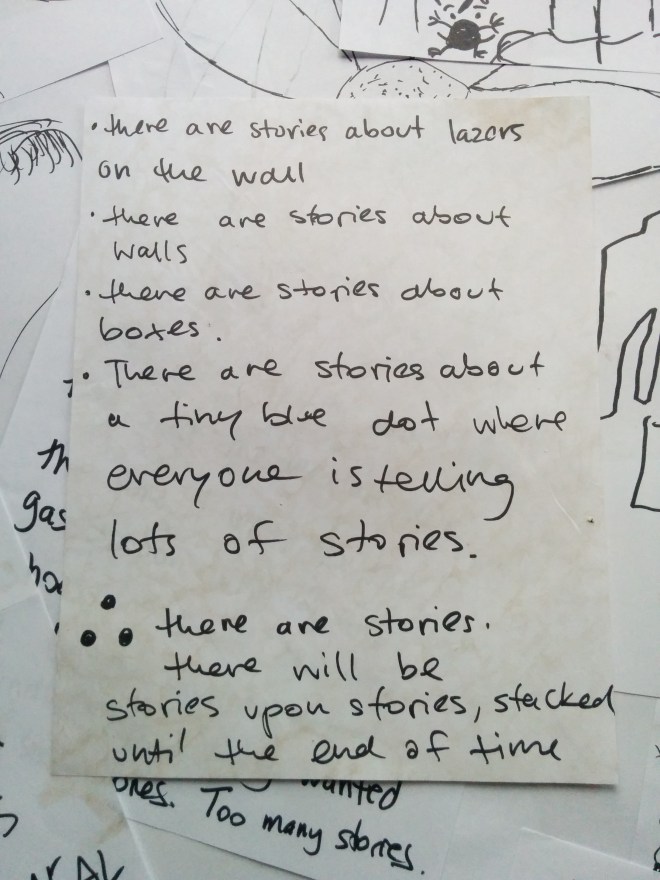 • there are stories about lazors
on the wall
• there are stories about
walls
• there are stories about
boxes.
• There are stories about
a tiny blue dot where
everyone is telling
lots of stories.
∴ there are stories.
there will be
stories upon stories, stacked
until the end of time
th
gas
ones. wanted
Too many stories.